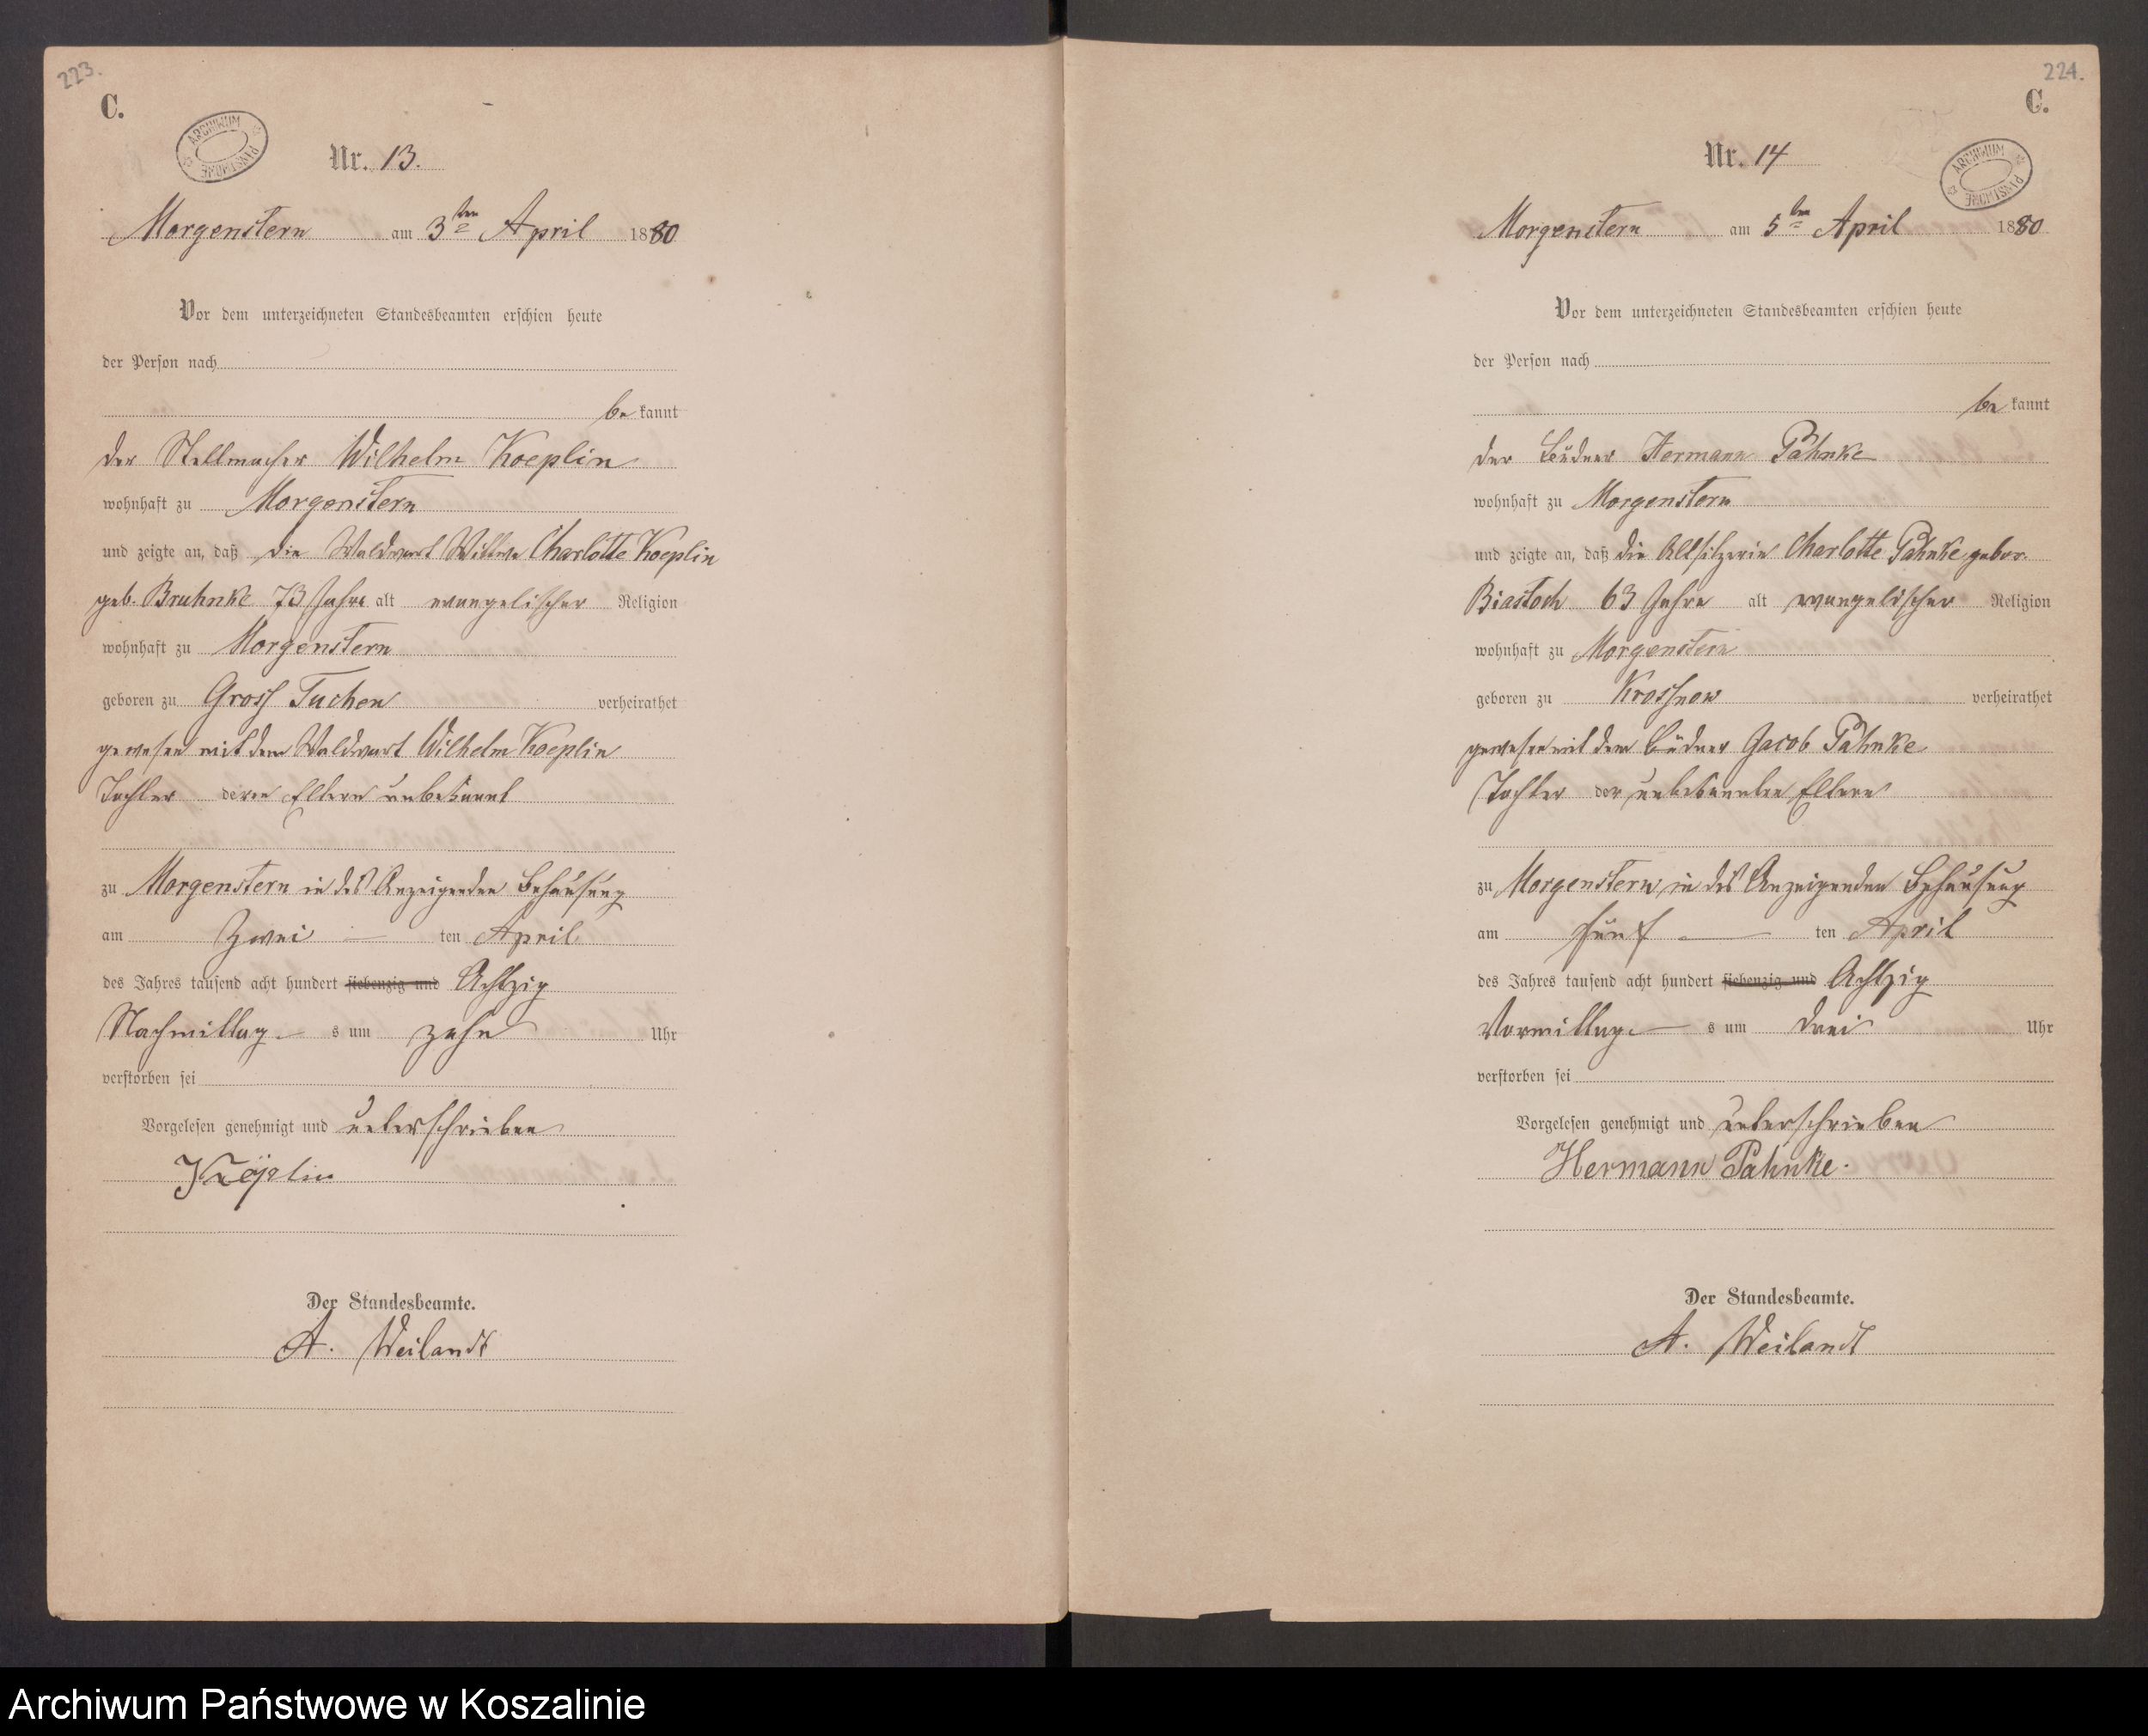 223.
C.
ARCHIWUM PAŃSTWOWE
Nr. 13.
Morgenstern am 3ten April 1880
Vor dem unterzeichneten Standesbeamten erschien heute
der Person nach
be kannt
der Stellmacher Wilhelm Koeplin
wohnhaft zu Morgenstern
und zeigte an, daß die Waldwart Wittwe Charlotte Koeplin
geb. Bruhnke 73 Jahre alt evangelischer Religion
wohnhaft zu Morgenstern
geboren zu Gross Tuchen verheirathet
gewesen mit dem Waldwart Wilhelm Koeplin
Tochter deren Eltern unbekannt
zu Morgenstern in des Anzeigenden Behausung
am zwei ten April
des Jahres tausend acht hundert siebenzig und Achtzig
Nachmittag s um zehn Uhr
verstorben sei
Vorgelesen genehmigt und unterschrieben
Köplin
Der Standesbeamte.
A. Weilandt
224.
C.
ARCHIWUM PAŃSTWOWE
Nr. 14
Morgenstern am 5ten April 1880
Vor dem unterzeichneten Standesbeamten erschien heute
der Person nach
be kannt
der Büdner Hermann Pahnke
wohnhaft zu Morgenstern
und zeigte an, daß die Altsitzerin Charlotte Pahnke gebor.
Biastoch 63 Jahre alt evangelischer Religion
wohnhaft zu Morgenstern
geboren zu Krossnow verheirathet
gewesen mit dem Büdner Jacob Pahnke
Tochter der unbekannten Eltern
zu Morgenstern in des Anzeigenden Behausung
am fünf ten April
des Jahres tausend acht hundert siebenzig und Achtzig
Vormittag s um drei Uhr
verstorben sei
Vorgelesen genehmigt und unterschrieben
Hermann Pahnke.
Der Standesbeamte.
A. Weilandt
Archiwum Państwowe w Koszalinie